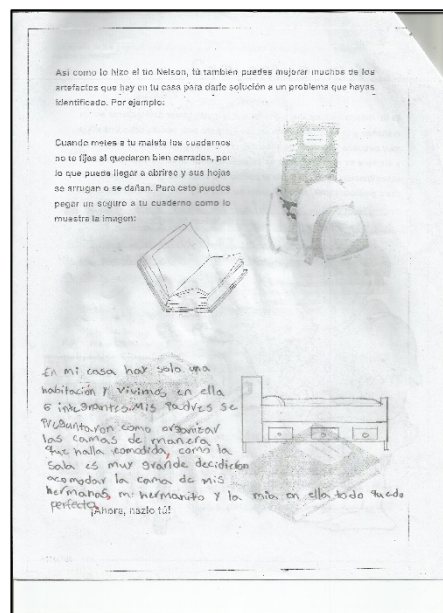 Así como lo hizo el tío Nelson, tú también puedes mejorar muchos de los
artefactos que hay en tu casa para darle solución a un problema que hayas
identificado. Por ejemplo:
Cuando metes a tu maleta los cuadernos
no te fijas si quedaron bien cerrados, por
lo que puede llegar a abrirse y sus hojas
se arrugan o se dañan. Para esto puedes
pegar un seguro a tu cuaderno como lo
muestra la imagen:
En mi casa hay solo una
habitación y vivimos en ella
6 integrantes. Mis Padres se
Preguntaron como organizar
las camas de manera
que halla comodida, como la
sala es muy grande decidieron
acomodar la cama de mis
hermanas, mi hermanito y la mia en ella todo quedo
perfecto.
¡Ahora, hazlo tú!